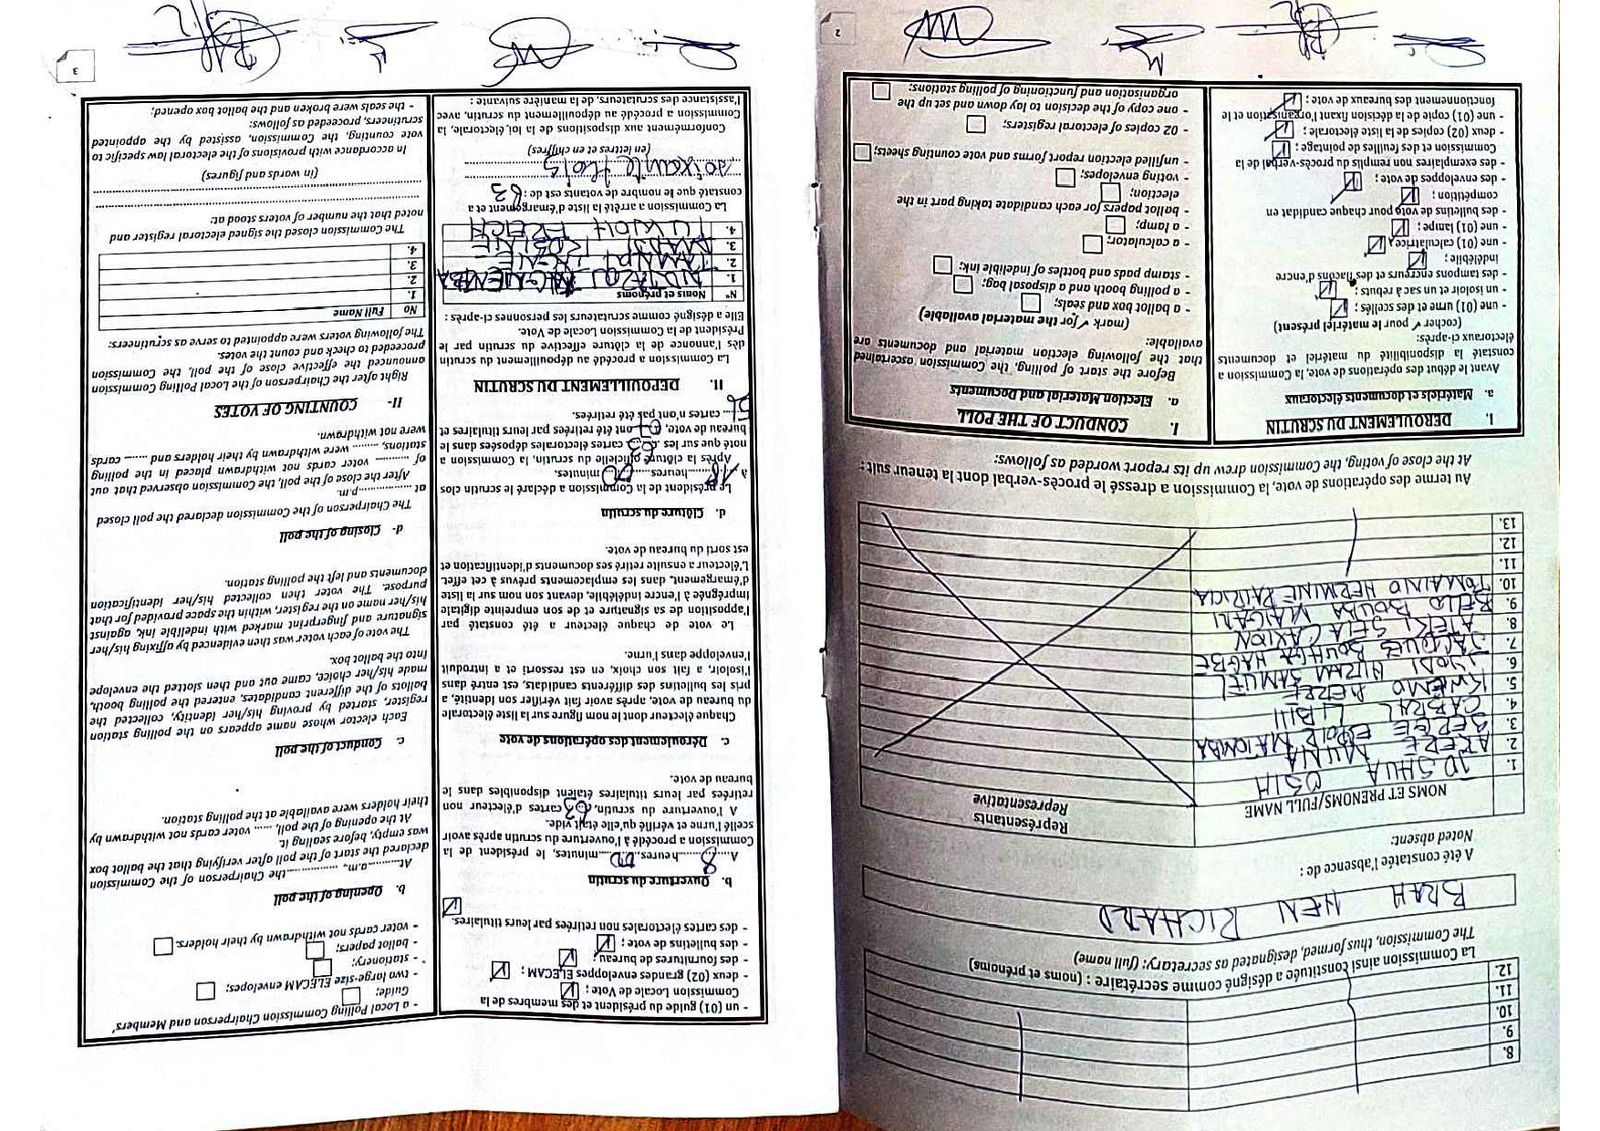 8.
9.
10.
11.
12.
La Commission ainsi constituée a désigné comme secrétaire : (noms et prénoms)
The Commission, thus formed, designated as secretary: (full name)
BRAH HEN RICHARD
A été constatée l'absence de :
Noted absent:
NOMS ET PRENOMS/FULL NAME
Représentants
Representative
1. JOSHUA OSIH
2. ATEKE MUNA
3. SERGE ESPOIR MATOMBA
4. CABRAL LIBII
5. KWEMO PIERRE
6. IYODI HIRAM SAMUEL
7. JACQUES BOUHGA HAGBE
8. ATEKI SETA CAXTON
9. BELLO BOUBA MAIGARI
10. TOMAINO HERMINE PATRICIA
11.
12.
13.
Au terme des opérations de vote, la Commission a dressé le procès-verbal dont la teneur suit :
At the close of voting, the Commission drew up its report worded as follows:
I. DEROULEMENT DU SCRUTIN
a. Matériels et documents électoraux
Avant le début des opérations de vote, la Commission a
constaté la disponibilité du matériel et documents
électoraux ci-après:
(cocher ✓ pour le matériel présent)
- une (01) urne et des scellés ;
- un isoloir et un sac à rebuts ;
- des tampons encreurs et des flacons d'encre
indélébile ;
- une (01) calculatrice ;
- une (01) lampe ;
- des bulletins de vote pour chaque candidat en
compétition ;
- des enveloppes de vote ;
- des exemplaires non remplis du procès-verbal de la
Commission et des feuilles de pointage ;
- deux (02) copies de la liste électorale ;
- une (01) copie de la décision fixant l'organisation et le
fonctionnement des bureaux de vote ;
I. CONDUCT OF THE POLL
a. Election Material and Documents
Before the start of polling, the Commission ascertained
that the following election material and documents are
available:
(mark ✓ for the material available)
- a ballot box and seals;
- a polling booth and a disposal bag;
- stamp pads and bottles of indelible ink;
- a calculator;
- a lamp;
- ballot papers for each candidate taking part in the
election;
- voting envelopes;
- unfilled election report forms and vote counting sheets;
- 02 copies of electoral registers;
- one copy of the decision to lay down and set up the
organisation and functioning of polling stations;
2
- un (01) guide du président et des membres de la
Commission Locale de Vote ;
- deux (02) grandes enveloppes ELECAM ;
- des fournitures de bureau ;
- des bulletins de vote ;
- des cartes électorales non retirées par leurs titulaires.
b. Ouverture du scrutin
A 8 heures 00 minutes, le président de la
Commission a procédé à l'ouverture du scrutin après avoir
scellé l'urne et vérifié qu'elle était vide.
A l'ouverture du scrutin, 63 cartes d'électeur non
retirées par leurs titulaires étaient disponibles dans le
bureau de vote.
c. Déroulement des opérations de vote
Chaque électeur dont le nom figure sur la liste électorale
du bureau de vote, après avoir fait vérifier son identité, a
pris les bulletins des différents candidats, est entré dans
l'isoloir, a fait son choix, en est ressorti et a introduit
l'enveloppe dans l'urne.
Le vote de chaque électeur a été constaté par
l'apposition de sa signature et de son empreinte digitale
imprégnée à l'encre indélébile, devant son nom sur la liste
d'émargement, dans les emplacements prévus à cet effet.
L'électeur a ensuite retiré ses documents d'identification et
est sorti du bureau de vote.
d. Clôture du scrutin
Le président de la Commission a déclaré le scrutin clos
à 18 heures 00 minutes.
Après la clôture officielle du scrutin, la Commission a
noté que sur les 63 cartes électorales déposées dans le
bureau de vote, 07 ont été retirées par leurs titulaires et
56 cartes n'ont pas été retirées.
II. DEPOUILLEMENT DU SCRUTIN
La Commission a procédé au dépouillement du scrutin
dès l'annonce de la clôture effective du scrutin par le
Président de la Commission Locale de Vote.
Elle a désigné comme scrutateurs les personnes ci-après :
N° Noms et prénoms
1.
2.
3.
4.
La Commission a arrêté la liste d'émargement et a
constaté que le nombre de votants est de : 63
soixante trois
(en lettres et en chiffres)
Conformément aux dispositions de la loi, électorale, la
Commission a procédé au dépouillement du scrutin, avec
l'assistance des scrutateurs, de la manière suivante :
- a Local Polling Commission Chairperson and Members'
Guide;
- two large-size ELECAM envelopes;
- stationery;
- ballot papers;
- voter cards not withdrawn by their holders.
b. Opening of the poll
At..........a.m., ..............the Chairperson of the Commission
declared the start of the poll after verifying that the ballot box
was empty, before sealing it.
At the opening of the poll, ..... voter cards not withdrawn by
their holders were available at the polling station.
c. Conduct of the poll
Each elector whose name appears on the polling station
register, started by proving his/her identity, collected the
ballots of the different candidates, entered the polling booth,
made his/her choice, came out and then slotted the envelope
into the ballot box.
The vote of each voter was then evidenced by affixing his/her
signature and fingerprint marked with indelible ink, against
his/her name on the register, within the space provided for that
purpose. The voter then collected his/her identification
documents and left the polling station.
d- Closing of the poll
The Chairperson of the Commission declared the poll closed
at ................p.m.
After the close of the poll, the Commission observed that out
of ......... voter cards not withdrawn placed in the polling
stations, ........ were withdrawn by their holders and ....... cards
were not withdrawn.
II- COUNTING OF VOTES
Right after the Chairperson of the Local Polling Commission
announced the effective close of the poll, the Commission
proceeded to check and count the votes.
The following voters were appointed to serve as scrutineers:
No Full Name
1.
2.
3.
4.
The Commission closed the signed electoral register and
noted that the number of voters stood at:
(in words and figures)
In accordance with provisions of the electoral law specific to
vote counting, the Commission, assisted by the appointed
scrutineers, proceeded as follows:
- the seals were broken and the ballot box opened;
3